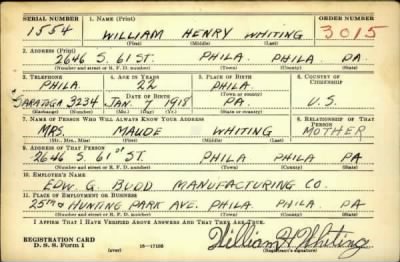 SERIAL NUMBER 1. NAME (Print) ORDER NUMBER
1554 WILLIAM HENRY WHITING 3015
(First) (Middle) (Last)
2. ADDRESS (Print)
2646 S. 61 ST. PHILA PHILA PA.
(Number and street or R. F. D. number) (Town) (County) (State)
3. TELEPHONE 4. AGE IN YEARS 5. PLACE OF BIRTH 6. COUNTRY OF CITIZENSHIP
PHILA. 22 PHILA.
DATE OF BIRTH (Town or county)
SARATOGA 9234 JAN. 7 1918 PA. U.S.
(Exchange) (Number) (Mo.) (Day) (Yr.) (State or country)
7. NAME OF PERSON WHO WILL ALWAYS KNOW YOUR ADDRESS 8. RELATIONSHIP OF THAT PERSON
MRS. MAUDE WHITING MOTHER
(Mr., Mrs., Miss) (First) (Middle) (Last)
9. ADDRESS OF THAT PERSON
2646 S. 61 ST. PHILA PHILA PA
(Number and street or R. F. D. number) (Town) (County) (State)
10. EMPLOYER'S NAME
EDW. G. BUDD MANUFACTURING CO.
11. PLACE OF EMPLOYMENT OR BUSINESS
25TH & HUNTING PARK AVE. PHILA. PHILA. PA.
(Number and street or R. F. D. number) (Town) (County) (State)
I AFFIRM THAT I HAVE VERIFIED ABOVE ANSWERS AND THAT THEY ARE TRUE.
REGISTRATION CARD
D. S. S. Form 1 (over) 16—17105 William H Whiting
(Registrant's signature)